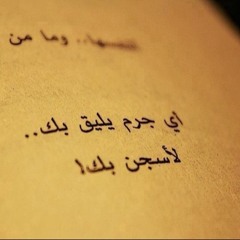 .. وما من
أي جرم يليق بك..
لأسجن بك!